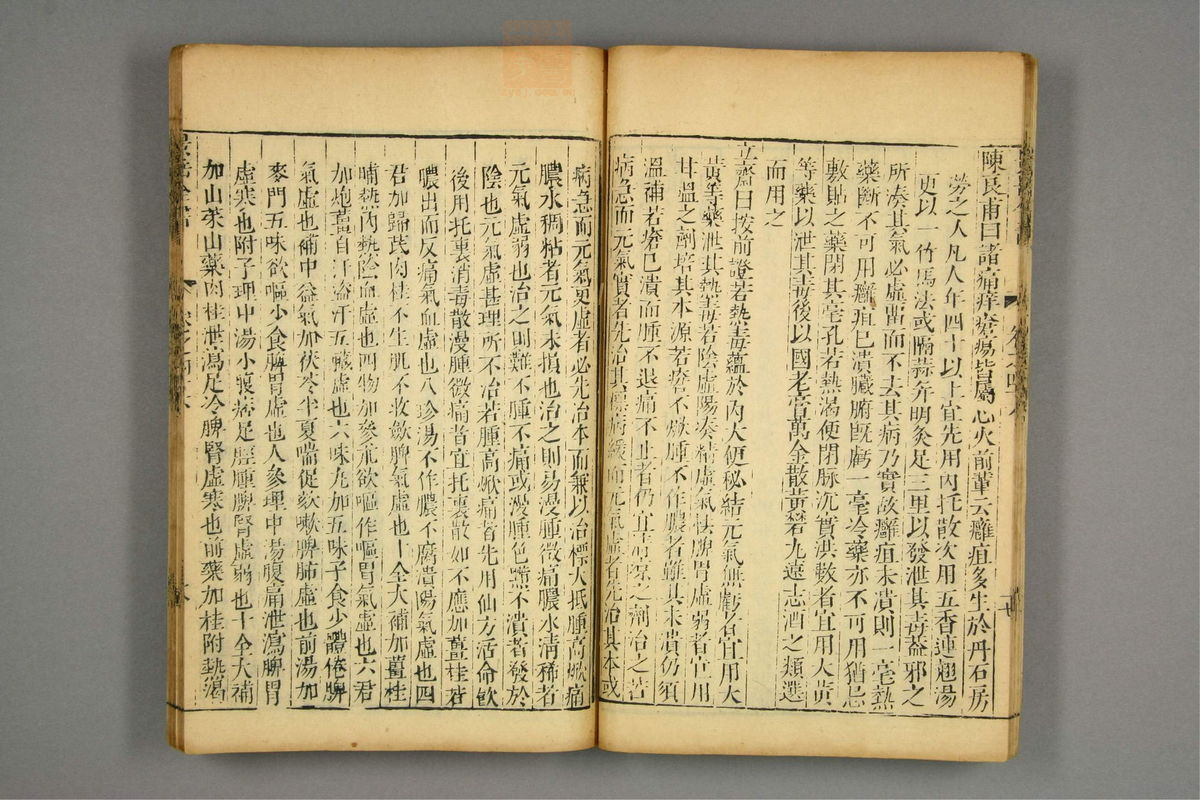 陳良甫曰諸痛痒瘡瘍皆屬心火前輩云癰疽多生於丹石房
勞之人凡人年四十以上宜先用內托散次用五香連翹湯
更以一竹馬法或隔蒜并明灸足三里以發泄其毒蓋邪之
所湊其氣必虛畱而不去其病乃實故癰疽未潰則一毫熱
藥斷不可用癰疽已潰臟腑旣虧一毫冷藥亦不可用猶忌
敷貼之藥閉其毫孔若熱渴便閉脉沉實洪數者宜用大黃
等藥以泄其毒後以國老膏萬金散黃礬丸遠志酒之類選
而用之
立齋曰按前證若熱毒蘊於內大便秘結元氣無虧者宜用大
黃等藥泄其熱毒若陰虛陽湊精虛氣怯脾胃虛弱者宜用
甘溫之劑培其本源若瘡不焮腫不作膿者雖其未潰仍須
溫補若瘡已潰而腫不退痛不止者仍宜淸凉之劑治之若
病急而元氣實者先治其標病緩而元氣虛者先治其本或
病急而元氣更虛者必先治本而兼以治標大抵腫高焮痛
膿水稠粘者元氣未損也治之則易漫腫微痛膿水淸稀者
元氣虛弱也治之則難不腫不痛或漫腫色黯不潰者發於
陰也元氣虛甚理所不治若腫高焮痛者先用仙方活命飲
後用托裏消毒散漫腫微痛者宜托裏散如不應加薑桂若
膿出而反痛氣血虛也八珍湯不作膿不腐潰陽氣虛也四
君加歸芪肉桂不生肌不收斂脾氣虛也十全大補加薑桂
晡熱內熱陰血虛也四物加參朮欲嘔作嘔胃氣虛也六君
加炮薑自汗盜汗五臟虛也六味丸加五味子食少體倦脾
氣虛也補中益氣加茯苓半夏喘促欬嗽脾肺虛也前湯加
麥門五味欲嘔少食脾胃虛也人參理中湯腹痛泄瀉脾胃
虛寒也附子理中湯小腹痞足脛腫脾腎虛弱也十全大補
加山茱山藥肉桂泄瀉足冷脾腎虛寒也前藥加桂附熱渴